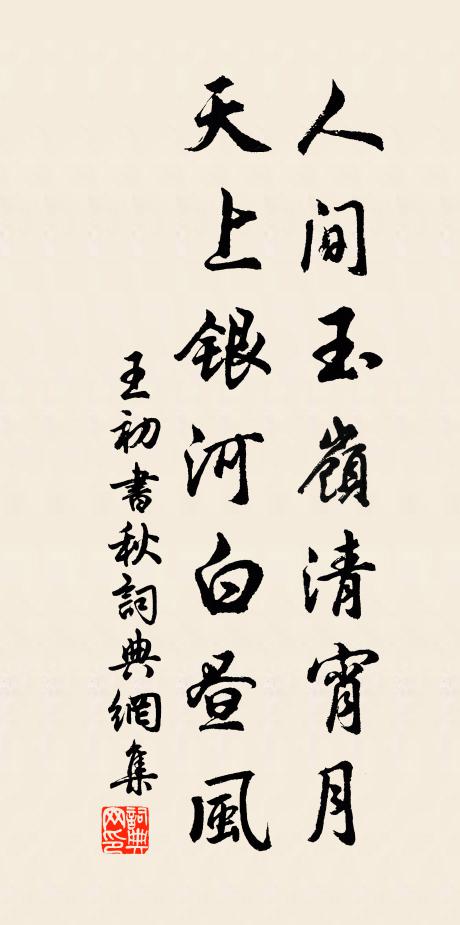 人間玉嶺清宵月
天上銀河白晝風
王初書秋詞典網集
詞典网印